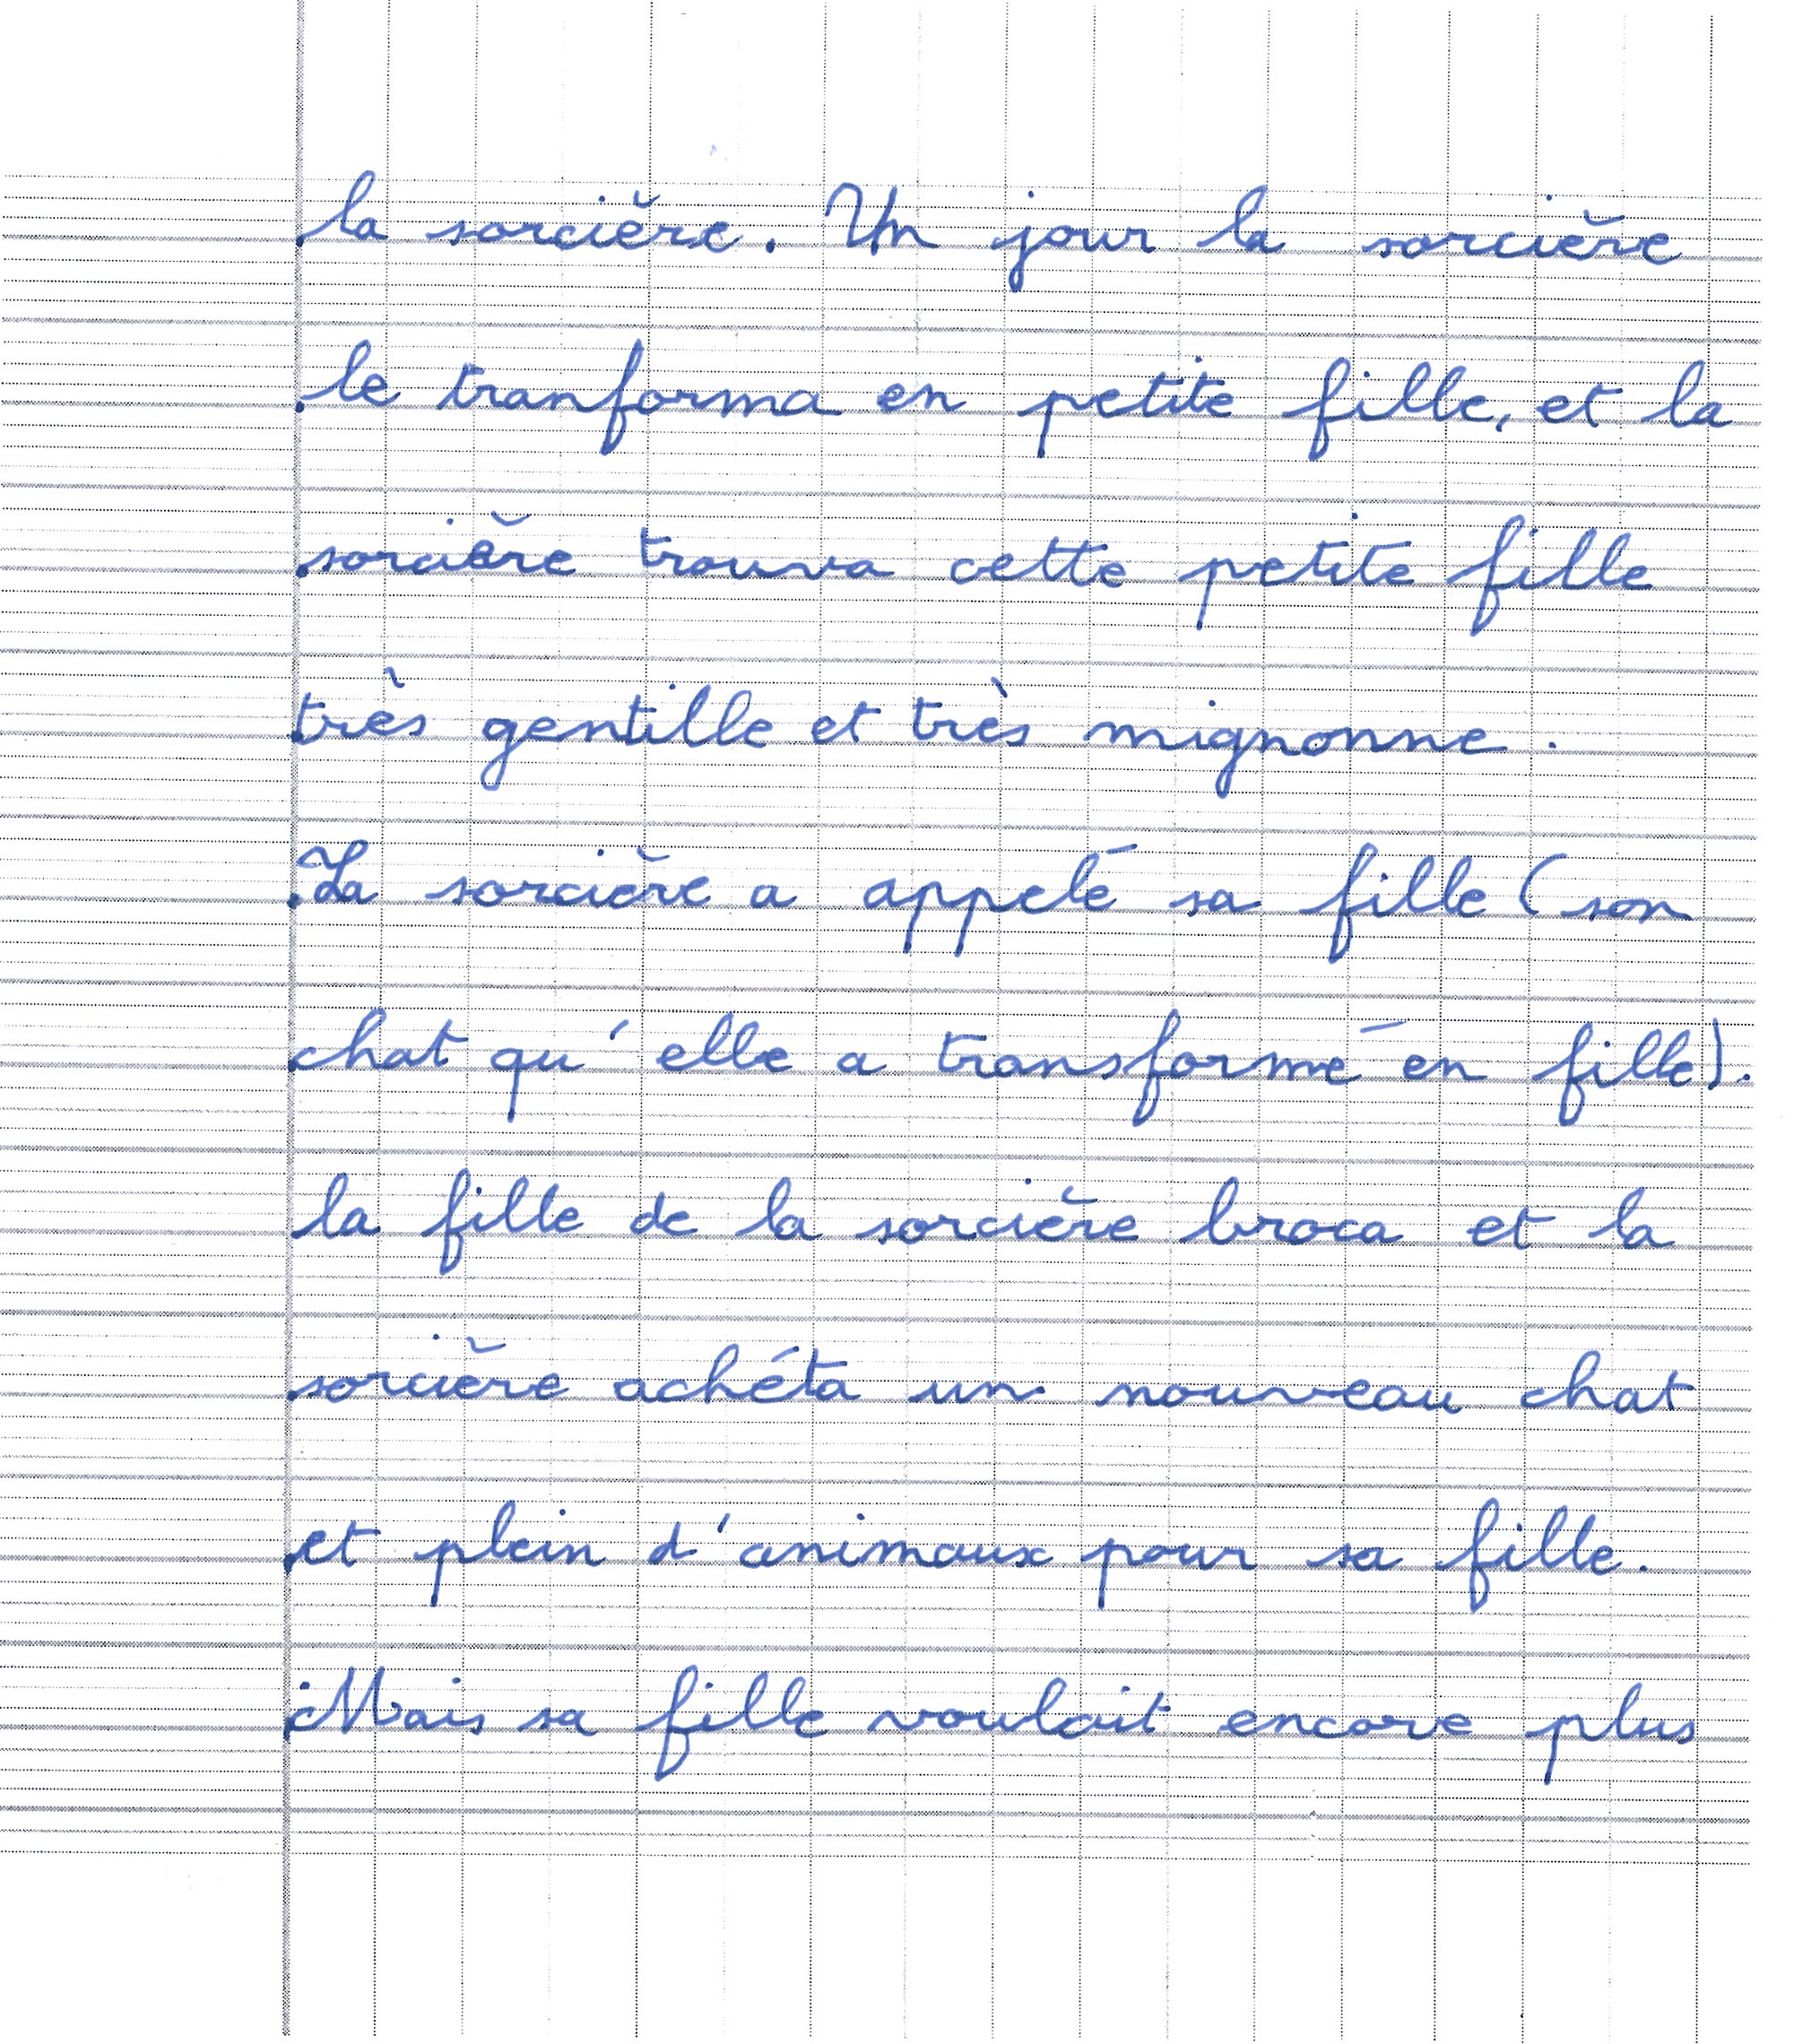 la sorcière. Un jour la sorcière
le tranforma en petite fille, et la
sorcière trouva cette petite fille
très gentille et très mignonne.
La sorcière a appelé sa fille (son
chat qu'elle a transformé en fille).
la fille de la sorcière broca et la
sorcière achéta un nouveau chat
et plein d'animaux pour sa fille.
Mais sa fille voulait encore plus